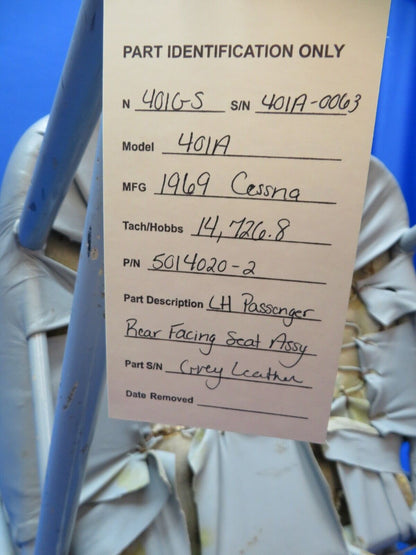 PART IDENTIFICATION ONLY
N 401GS S/N 401A-0063
Model 401A
MFG 1969 Cessna
Tach/Hobbs 14,726.8
P/N 5014020-2
Part Description LH Passenger
Rear Facing Seat Assy
Part S/N Grey Leather
Date Removed